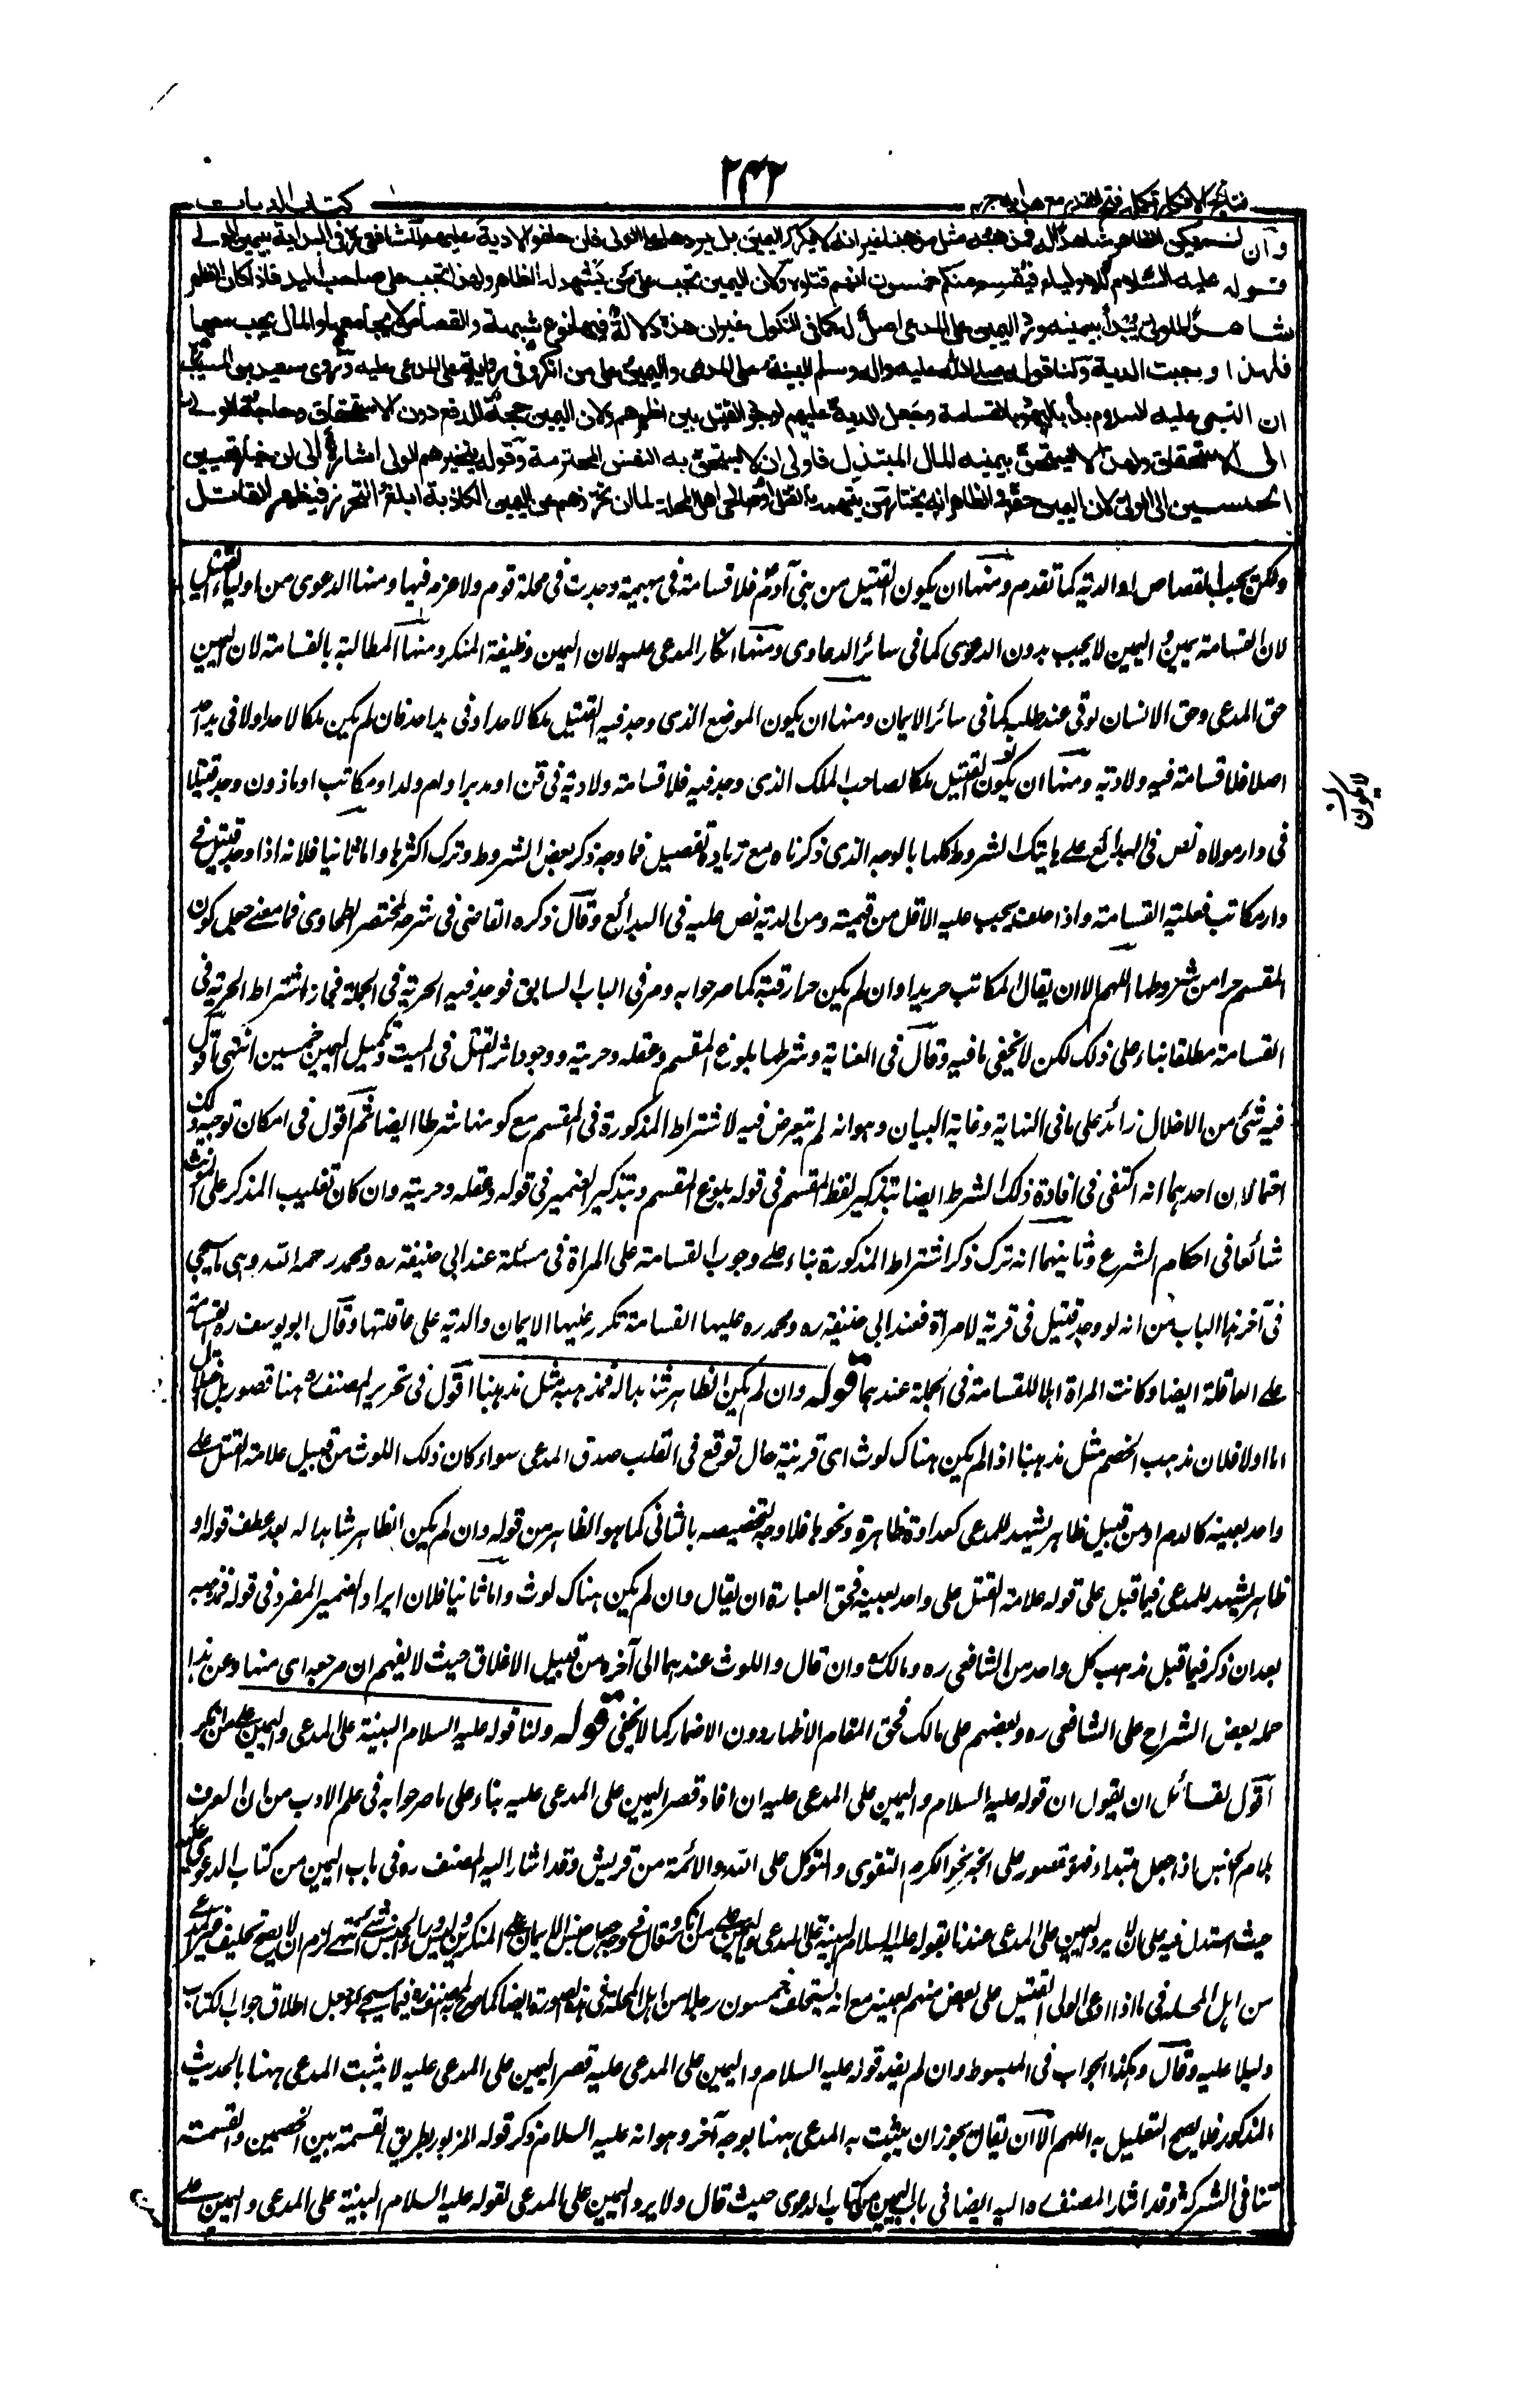 ۲۴۲
نتائج الافکار تکملہ فتح القدیر مع ہدایہ ج
کتاب الدیات
وان لم یکن الظاهر شاهدا له فمذهبه مثل مذهبنا غیر انه لا یکرر الیمین بل یردها علی الولی فان حلفوا لا دیة علیهم للشافعی فی البدایة بیمین الولی
قوله علیه السلام للاولیاء فیقسم منکم خمسون انهم قتلوه ولان الیمین تجب علی من یشهد له الظاهر ولهذا تجب علی صاحب الید فاذا کان الظاهر
شاهدا للولی یبدأ بیمینه ورد الیمین علی المدعی اصل له کما فی النکول غیر ان هذه دلالة فیها نوع شبهة والقصاص لا یجامعها والمال یجب معها
فلهذا وجبت الدیة ولنا قوله صلی الله علیه واله وسلم البینة علی المدعی والیمین علی من انکر وفی روایة علی المدعی علیه وروی سعید بن المسیب
ان النبی علیه السلام بدأ بالیهود بالقسامة وجعل الدیة علیهم لوجود القتیل بین اظهرهم ولان الیمین حجة للدفع دون الاستحقاق وحاجة الولی
الی الاستحقاق ولهذا لا یستحق بیمینه المال المبتذل فاولی ان لا یستحق به النفس المحترمة وقوله یتخیرهم الولی اشارة الی ان خیار تعیین
الخمسین الی الولی لان الیمین حقه والظاهر انه یختار من یتهمه بالقتل او صالحی اهل المحلة لما ان تحرزهم عن الیمین الکاذبة ابلغ التحرز فیظهر القاتل
ولکن یجب القصاص او الدیة کما تقدم ومنها ان یکون القتیل من بنی آدم فلا قسامة فی بهیمة وجدت فی محلة قوم ولا غرم فیها ومنها الدعوی من اولیاء القتیل
لان القسامة یمین والیمین لا یجب بدون الدعوی کما فی سائر الدعاوی ومنها انکار المدعی علیه لان الیمین وظیفة المنکر ومنها المطالبة بالقسامة لان الیمین
حق المدعی وحق الانسان یوفی عند طلبه کما فی سائر الایمان ومنها ان یکون الموضع الذی وجد فیه القتیل ملکا لاحد او فی ید احد فان لم یکن ملکا لاحد ولا فی ید احد
اصلا فلا قسامة فیه ولا دیة ومنها ان یکون القتیل ملکا لصاحب الملک الذی وجد فیه فلا قسامة ولا دیة فی قن او مدبر او ام ولد او مکاتب او ماذون وجد قتیلا
لا یکون
فی دار مولاه نص فی البدائع علی هاتیک الشروط کلها بالوجه الذی ذکرناه مع زیادة تفصیل فما وجه ذکر بعض الشروط وترک اکثرها واما ثانیا فلانه اذا وجد قتیل فی
دار مکاتب فعلیه القسامة واذا حلف یجب علیه الاقل من قیمته ومن الدیة نص علیه فی البدائع وقال ذکره القاضی فی شرحه لمختصر الطحاوی فما معنی جعل کون
المقسم حرا من شروطها اللهم الا ان یقال المکاتب حر یدا وان لم یکن حرا رقبة کما صرحوا به ومر فی الباب السابق فوجد فیه الحریة فی الجملة فجاز اشتراط الحریة فی
القسامة مطلقا بناء علی ذلک لکن لا یخفی ما فیه وقال فی العنایة وشرطها بلوغ المقسم وعقله وحریته ووجود اثر القتل فی المیت وتکمیل الیمین خمسین انتهی اقول
فیه شئ من الاخلال زائد علی ما فی النهایة وغایة البیان وهو انه لم یتعرض فیه لاشتراط الذکورة فی المقسم مع کونها شرطا ایضا ثم اقول فی امکان توجیه ذلک
احتمالان احدهما انه اکتفی فی افادة ذلک الشرط ایضا بتذکیر لفظ المقسم فی قوله بلوغ المقسم وبتذکیر الضمیر فی قوله وعقله وحریته وان کان تغلیب المذکر علی المؤنث
شائعا فی احکام الشرع وثانیهما انه ترک ذکر اشتراط الذکورة بناء علی وجوب القسامة علی المراة فی مسئلة عند ابی حنیفة ره ومحمد رحمه الله وهی ما سیجئ
فی آخر هذا الباب من انه لو وجد قتیل فی قریة لامراة فعند ابی حنیفة ره ومحمد ره علیها القسامة تکرر علیها الایمان والدیة علی عاقلتها وقال ابو یوسف ره القسامة
علی العاقلة ایضا وکانت المراة اهلا للقسامة فی الجملة عندهما قوله وان لم یکن الظاهر شاهدا له فمذهبه مثل مذهبنا اقول فی تحریر المصنف ره هنا قصور بل اخلال
اما اولا فلان مذهب الخصم مثل مذهبنا اذا لم یکن هناک لوث ای قرینة حال توقع فی القلب صدق المدعی سواء کان ذلک اللوث من قبیل علامة القتل علی
واحد بعینه کالدم او من قبیل ظاهر یشهد للمدعی کعداوة ظاهرة ونحوها فلا وجه لتخصیصه بالثانی کما هو الظاهر من قوله وان لم یکن الظاهر شاهدا له بعد عطف قوله او
ظاهر یشهد للمدعی فیما قبل علی قوله علامة القتل علی واحد بعینه فحق العبارة ان یقال وان لم یکن هناک لوث واما ثانیا فلان ایراد الضمیر المفرد فی قوله فمذهبه
بعد ان ذکر فیما قبل مذهب کل واحد من الشافعی ره ومالک ره وان قال واللوث عندهما الی آخره من قبیل الاغلاق حیث لا یفهم ان مرجعه ای منها وعن هذا
حمله بعض الشراح علی الشافعی ره وبعضهم علی مالک فحق المقام الاظهار دون الاضمار کما لا یخفی قوله ولنا قوله علیه السلام البینة علی المدعی والیمین علی من انکر
اقول لقائل ان یقول ان قوله علیه السلام والیمین علی المدعی علیه ان افاد قصر الیمین علی المدعی علیه بناء علی ما صرحوا به فی علم الادب من ان المعرف
بلام الجنس اذا جعل مبتدا فهو مقصور علی الخبر نحو الکرم التقوی والتوکل علی الله والائمة من قریش وقد اشار الیه المصنف ره فی باب الیمین من کتاب الدعوی
حیث استدل فیه علی ان لا یرد الیمین علی المدعی عندنا بقوله علیه السلام البینة علی المدعی والیمین علی من انکر وقال فی وجهه جعل جنس الایمان علی المنکرین ولیس وراء الجنس شئ انتهی لزم ان لا یصح تحلیف غیر المدعی علیه
من اهل المحلة فی ما اذا ادعی الولی القتیل علی بعض منهم بعینه مع انه یستحلف خمسون رجلا من اهل المحلة فی هذه الصورة ایضا کما صرح به المصنف ره فیما سیجئ وجعل اطلاق جواب الکتاب
دلیلا علیه وقال وهکذا الجواب فی المبسوط وان لم یفد قوله علیه السلام والیمین علی المدعی علیه قصر الیمین علی المدعی علیه لا یثبت المدعی ههنا بالحدیث
المذکور فلا یصح التعلیل به اللهم الا ان یقال یجوز ان یثبت به المدعی ههنا بوجه آخر وهو انه علیه السلام ذکر قوله المزبور بطریق القسمة بین الخصمین والقسمة
تنافی الشرکة وقد اشار المصنف ره الیه ایضا فی باب الیمین من کتاب الدعوی حیث قال ولا یرد الیمین علی المدعی لقوله علیه السلام البینة علی المدعی والیمین علی